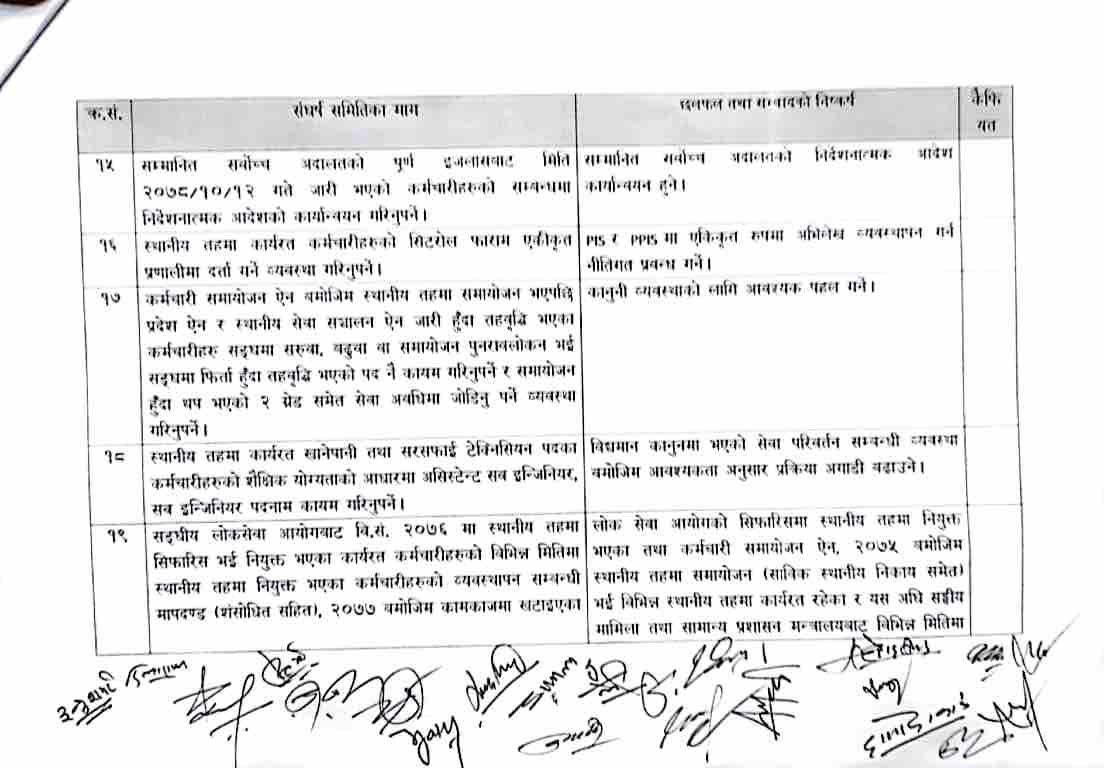 क.सं.
संघर्ष समितिका माग
छलफल तथा सम्वादको निष्कर्ष
कैफियत
१५
सम्मानित सर्वोच्च अदालतको पुर्ण इजलासबाट मिति
२०७८/१०/१२ गते जारी भएको कर्मचारीहरुको सम्बन्धमा
निर्देशनात्मक आदेशको कार्यान्वयन गरिनुपर्ने।
सम्मानित सर्वोच्च अदालतको निर्देशनात्मक आदेश
कार्यान्वयन हुने।
१६
स्थानीय तहमा कार्यरत कर्मचारीहरुको सिटरोल फाराम एकीकृत
प्रणालीमा दर्ता गर्ने व्यवस्था गरिनुपर्ने।
PIS र PPIS मा एकिकृत रुपमा अभिलेख व्यवस्थापन गर्न
नीतिगत प्रवन्ध गर्ने।
१७
कर्मचारी समायोजन ऐन बमोजिम स्थानीय तहमा समायोजन भएपछि
प्रदेश ऐन र स्थानीय सेवा सञ्चालन ऐन जारी हुँदा तहवृद्धि भएका
कर्मचारीहरु सङ्घमा सरुवा, बढुवा वा समायोजन पुनरावलोकन भई
सङ्घमा फिर्ता हुँदा तहवृद्धि भएको पद नै कायम गरिनुपर्ने र समायोजन
हुँदा थप भएको २ ग्रेड समेत सेवा अवधिमा जोडिनु पर्ने व्यवस्था
गरिनुपर्ने।
कानुनी व्यवस्थाको लागि आवश्यक पहल गर्ने।
१८
स्थानीय तहमा कार्यरत खानेपानी तथा सरसफाई टेक्निसियन पदका
कर्मचारीहरुको शैक्षिक योग्यताको आधारमा असिस्टेन्ट सव इन्जिनियर,
सव इन्जिनियर पदनाम कायम गरिनुपर्ने।
विद्यमान कानुनमा भएको सेवा परिवर्तन सम्बन्धी व्यवस्था
बमोजिम आवश्यकता अनुसार प्रक्रिया अगाडी बढाउने।
१९
सङ्घीय लोकसेवा आयोगबाट बि.सं. २०७६ मा स्थानीय तहमा
सिफारिस भई नियुक्त भएका कार्यरत कर्मचारीहरुको विभिन्न मितिमा
स्थानीय तहमा नियुक्त भएका कर्मचारीहरुको व्यवस्थापन सम्बन्धी
मापदण्ड (शंसोधित सहित), २०७७ बमोजिम कामकाजमा खटाइएका
लोक सेवा आयोगको सिफारिसमा स्थानीय तहमा नियुक्त
भएका तथा कर्मचारी समायोजन ऐन, २०७५ बमोजिम
स्थानीय तहमा समायोजन (साविक स्थानीय निकाय समेत)
भई विभिन्न स्थानीय तहमा कार्यरत रहेका र यस अघि सङ्घीय
मामिला तथा सामान्य प्रशासन मन्त्रालयबाट विभिन्न मितिमा